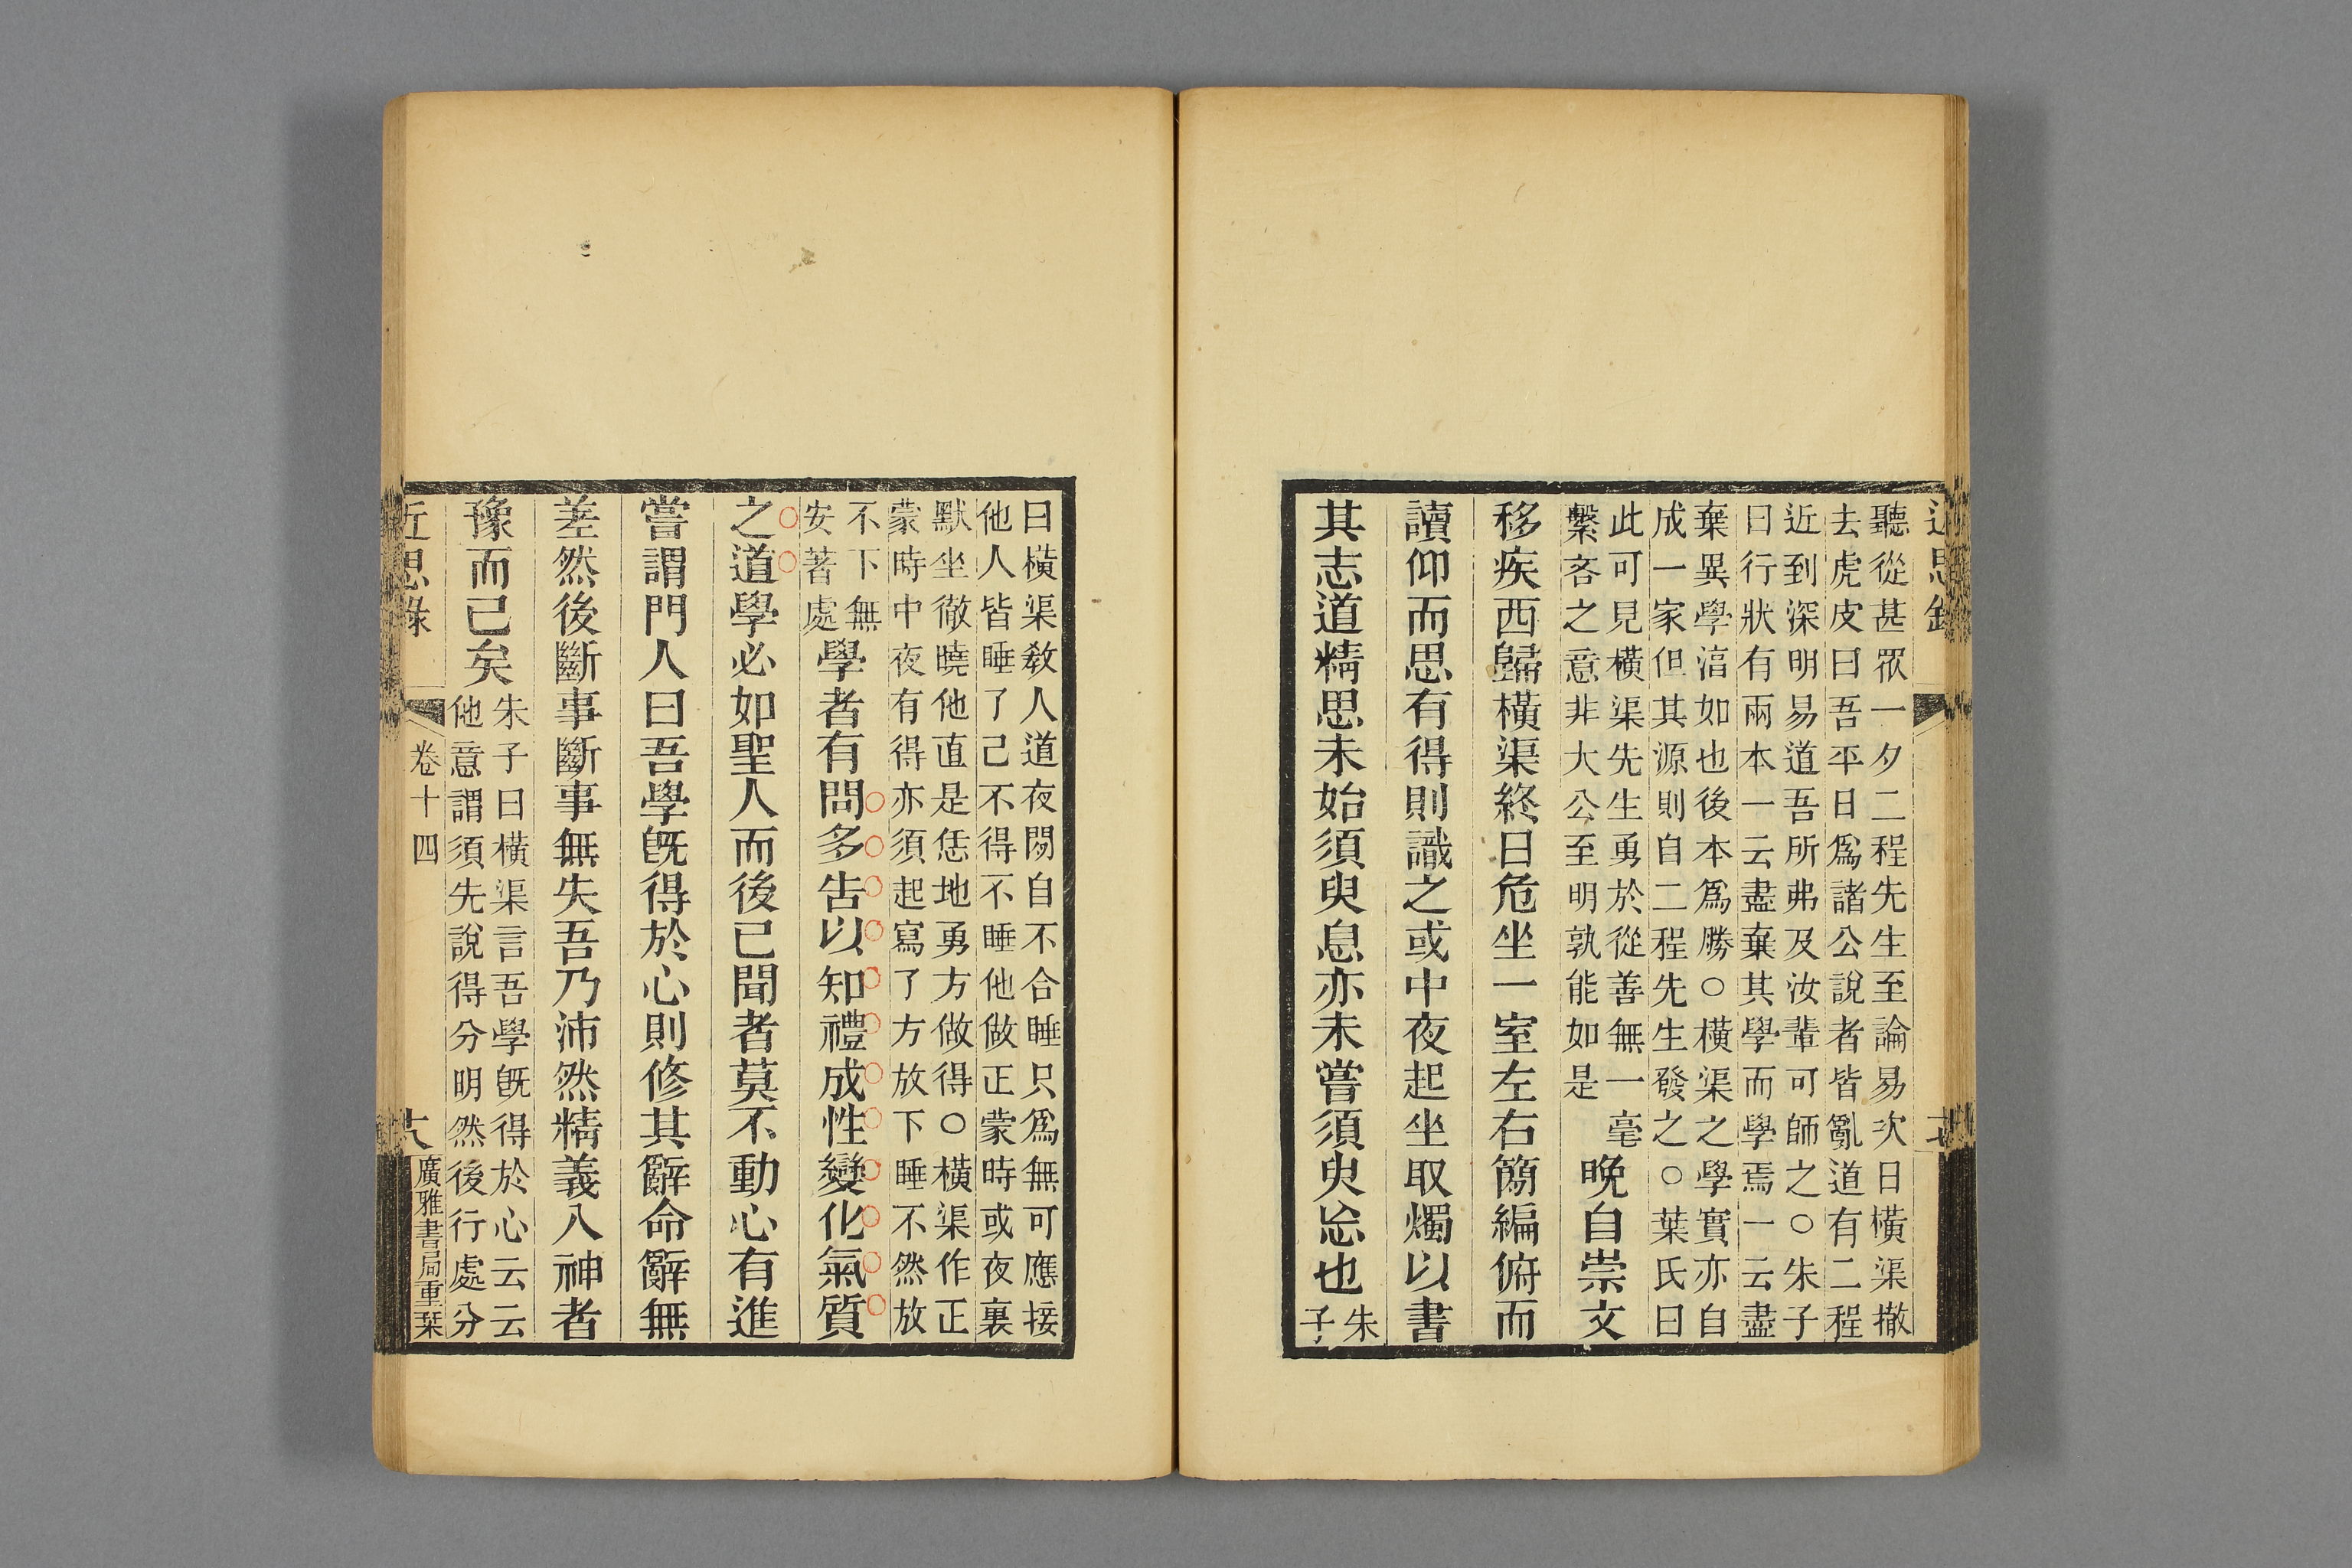 近思錄
聽從甚眾一夕二程先生至論易次日橫渠撤
去虎皮曰吾平日爲諸公說者皆亂道有二程
近到深明易道吾所弗及汝輩可師之○朱子
曰行狀有兩本一云盡棄其學而學焉一云盡
棄異學湻如也後本爲勝○橫渠之學實亦自
成一家但其源則自二程先生發之○葉氏曰
此可見橫渠先生勇於從善無一毫
繫吝之意非大公至明孰能如是
晚自崇文
移疾西歸橫渠終日危坐一室左右簡編俯而
讀仰而思有得則識之或中夜起坐取燭以書
其志道精思未始須臾息亦未嘗須臾忘也
朱
子
曰橫渠敎人道夜閒自不合睡只爲無可應接
他人皆睡了己不得不睡他做正蒙時或夜裏
默坐徹曉他直是恁地勇方做得○橫渠作正
蒙時中夜有得亦須起寫了方放下睡不然放
不下無
安著處
學者有問多告以知禮成性變化氣質
之道學必如聖人而後已聞者莫不動心有進
嘗謂門人曰吾學旣得於心則修其辭命辭無
差然後斷事斷事無失吾乃沛然精義入神者
豫而已矣
朱子曰橫渠言吾學旣得於心云云
他意謂須先說得分明然後行處分
近思錄
卷十四
廣雅書局重栞